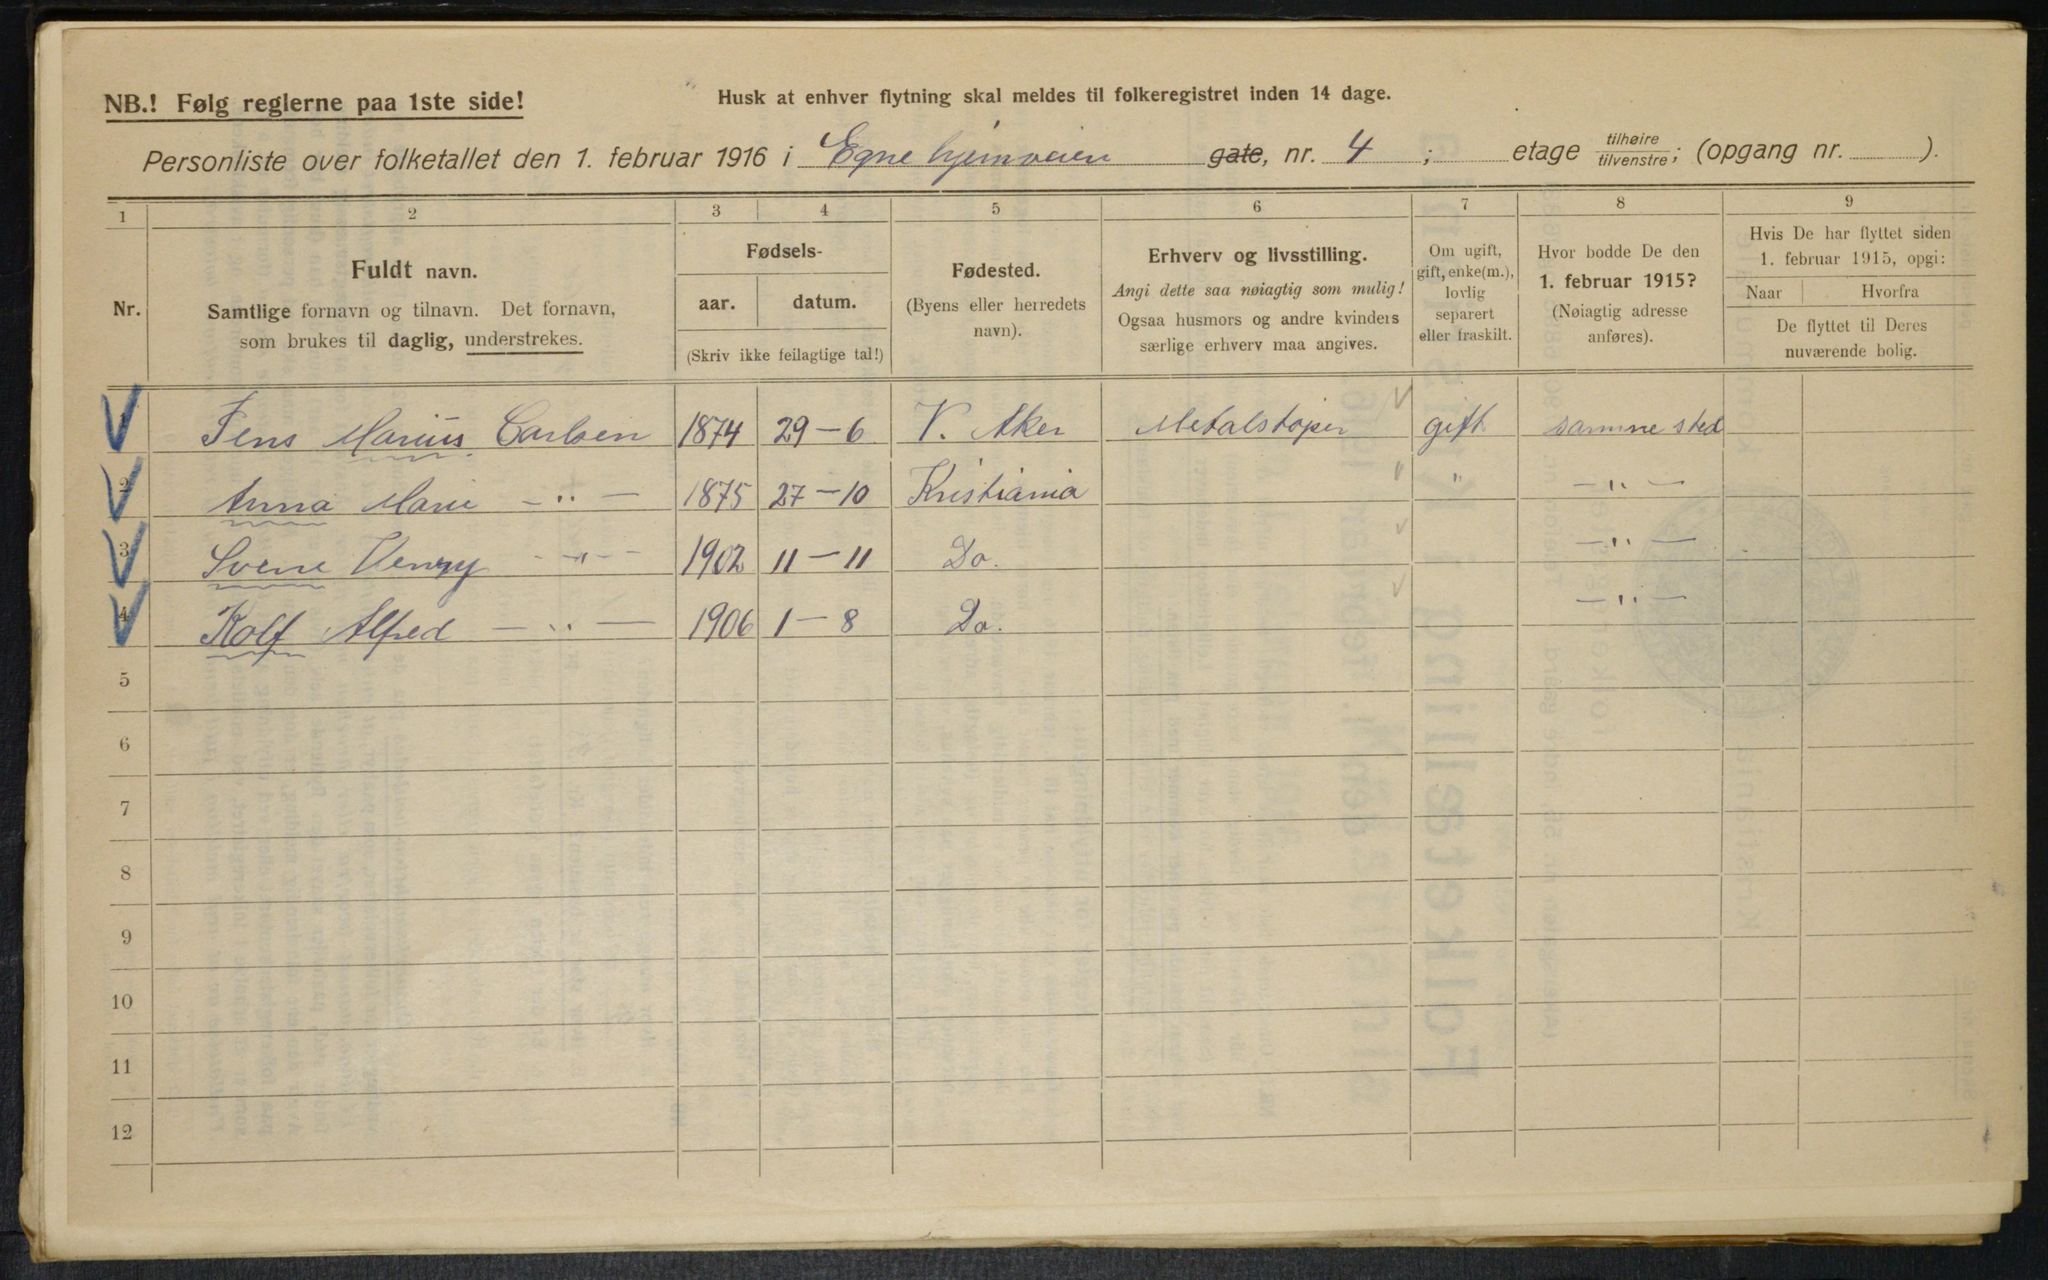 NB.! Følg reglerne paa 1ste side!
Husk at enhver flytning skal meldes til folkeregistret inden 14 dage.
Personliste over folketallet den 1. februar 1916 i Egne hjemveien gate, nr. 4 ; etage tilhøire tilvenstre; (opgang nr. ).
1 2 3 4 5 6 7 8 9
Nr.
Fuldt navn.
Samtlige fornavn og tilnavn. Det fornavn,
som brukes til daglig, understrekes.
Fødsels-
aar. datum.
(Skriv ikke feilagtige tal!)
Fødested.
(Byens eller herredets
navn).
Erhverv og livsstilling.
Angi dette saa nøiagtig som mulig!
Ogsaa husmors og andre kvinders
særlige erhverv maa angives.
Om ugift,
gift, enke(m.),
lovlig
separert
eller fraskilt.
Hvor bodde De den
1. februar 1915?
(Nøiagtig adresse
anføres).
Hvis De har flyttet siden
1. februar 1915, opgi:
Naar Hvorfra
De flyttet til Deres
nuværende bolig.
1 Jens Marius Carlsen 1874 29-6 V. Aker Metalstøper gift samme sted
2 Anna Marie —"— 1875 27-10 Kristiania " —"—
3 Sverre Henry —"— 1902 11-11 Do. —"—
4 Rolf Alfred —"— 1906 1-8 Do. —"—
5
6
7
8
9
10
11
12